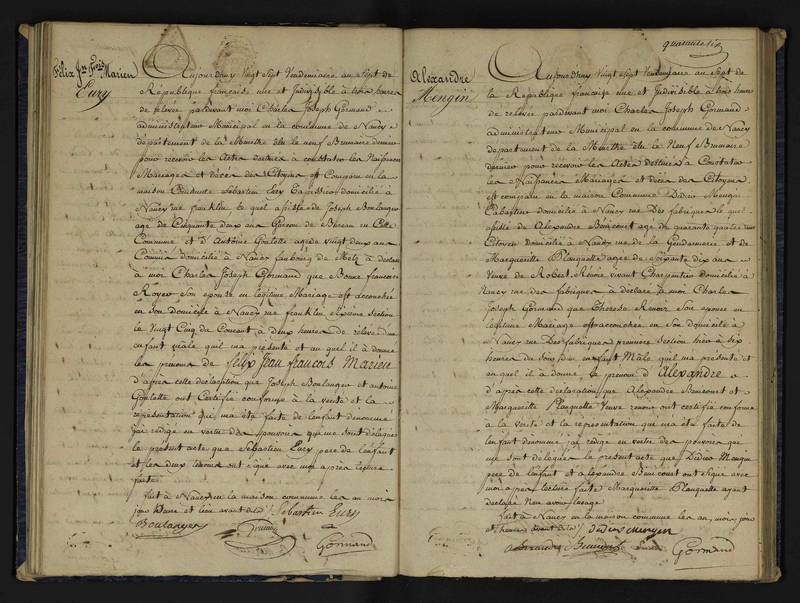 Félix Jean Frois Marien
Eury
Aujourdhuy vingt sept Vendemiaire an sept de
la République française une et Indivisible à trois heures
de relevée pardevant moi Charles Joseph Gormand
administrateur Municipal en la commune de Nancy
departement de la Meurthe élu le neuf Brumaire dernier
pour recevoir les Actes destinés a constater les Naissances
Mariages et décès des Citoyens est Comparu en la
maison Commune Sébastien Eury Tapissier domicilié à
Nancy rue franklin, le quel assisté de Joseph Boulanger
age de Cinquante deux ans Garçon de Bureau en Cette
Commune et d'Antoine Goulette agé de vingt deux ans
Commis domicilié à Nancy faubourg de Metz à declaré
à moi Charles Joseph Gormand que Bonne françoise
Royer Son epouse en légitime Mariage est accouchée
en Son domicile à Nancy rue franklin Sixieme Section
le Vingt Cinq du Courant à deux heures de relevée d'un
enfant mâle quil ma présenté et au quel il à donné
les prenoms de félix Jean françois Marien
d'après cette déclaration que Joseph Boulanger et antoine
Goulette ont Certifié conforme à la verité et la
représentation qui ma été faite de lenfant denommé
jai rédigé en vertu des pouvoirs qui me sont délégués
le présent acte que Sébastien Eury pere de lenfant
et les deux témoins ont signé avec moi apres lecture
faite
fait à Nancy en la maison commune les an mois
jour heure et lieu avant dits Sebastien Eury
Boulanger
Gormand
Alexandre
Mengin
Aujourdhuy Vingt sept Vendemiaire an sept de
la République française une et Indivisible à trois heures
de relevée pardevant moi Charles Joseph Gormand
administrateur Municipal en la commune de Nancy
departement de la Meurthe élu le Neuf Brumaire
dernier pour recevoir les Actes destinés à Constater
les Naissances Mariages et décès des Citoyens
est comparu en la maison Commune Didier Mengin
domicilié à Nancy rue Des fabriques le quel
assisté de Alexandre agé de quarante quatre ans
Citoyen domicilié à Nancy rue de la Gendarmerie et de
Marguerite Planquette agée de Soixante dix ans
Veuve de Robert Renoir vivant Charpentier domiciliée à
Nancy rue des fabriques à déclaré à moi Charles
Joseph Gormand que Therese Renoir Son epouse en
légitime Mariage est accouchée en Son domicile à
Nancy rue Des fabriques premiere Section hier à six
heures du Soir d'un enfant Mâle quil ma présenté et
au quel il à donné le prenom d'Alexandre
d'après cette declaration que Alexandre et
Marguerite Planquette Veuve renoir ont certifié conforme
à la verité et la représentation qui ma été faite de
lenfant denommé j'ai rédigé en vertu des pouvoirs qui
me sont délégués le présent acte que Didier Mengin
pere de lenfant et alexandre ont signé avec
moi apres lecture faite Marguerite Planquette ayant
declaré Neu avoir lusage
fait à Nancy en la maison commune les an, mois, jour
et heure avant dits Didier Mengin
Gormand